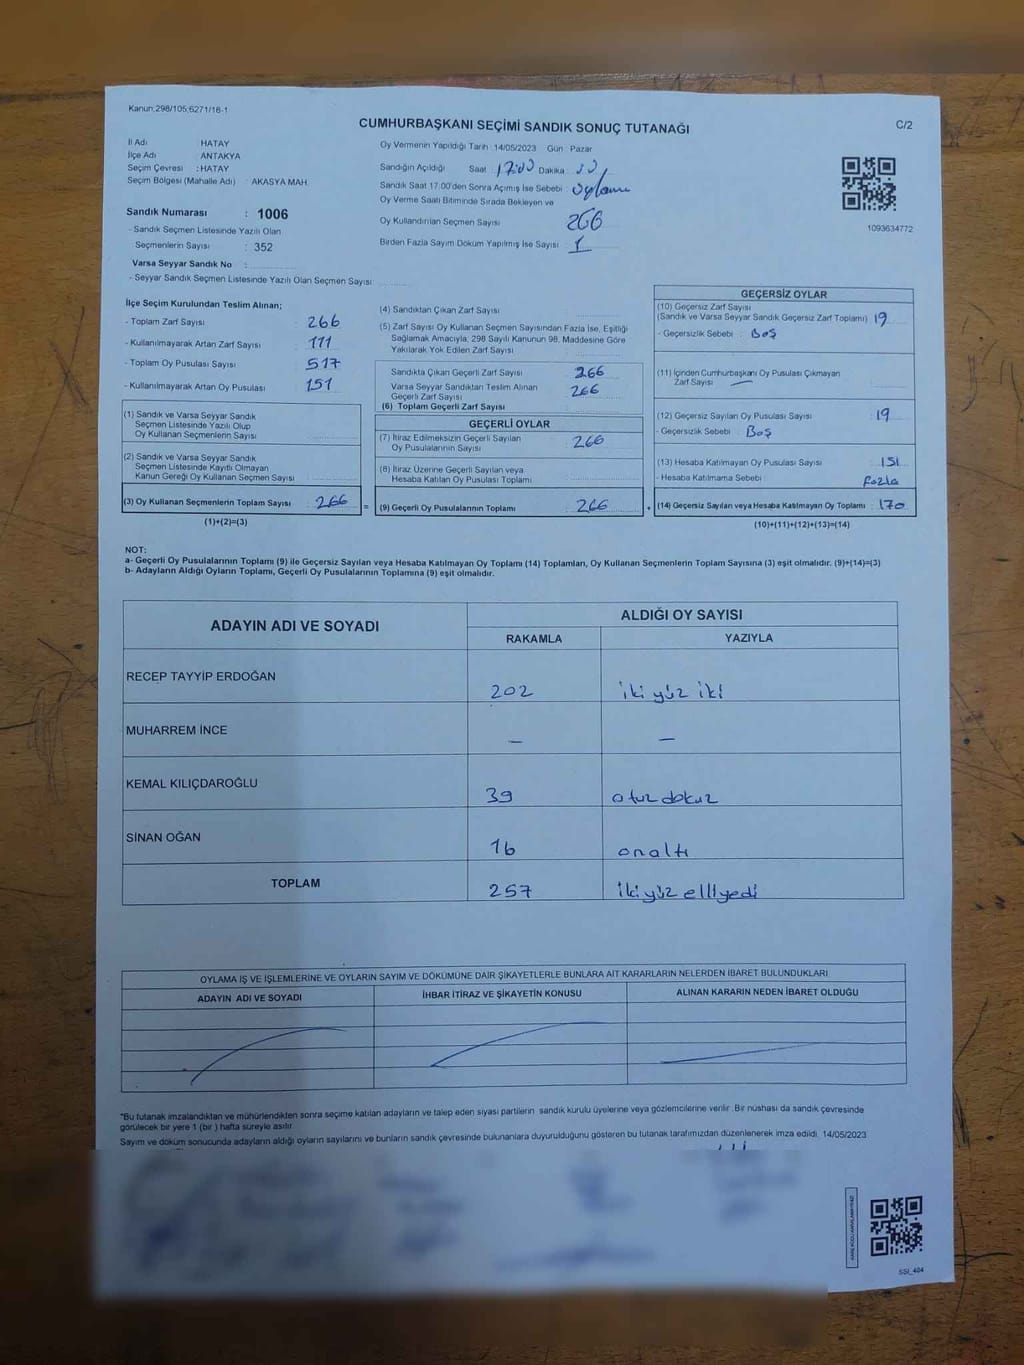 Kanun.298/105,6271/18-1
CUMHURBAŞKANI SEÇİMİ SANDIK SONUÇ TUTANAĞI
C/2
İl Adı HATAY
İlçe Adı ANTAKYA
Seçim Çevresi : HATAY
Seçim Bölgesi (Mahalle Adı) : AKASYA MAH.
Sandık Numarası : 1006
- Sandık Seçmen Listesinde Yazılı Olan
Seçmenlerin Sayısı : 352
Varsa Seyyar Sandık No :
- Seyyar Sandık Seçmen Listesinde Yazılı Olan Seçmen Sayısı:
Oy Vermenin Yapıldığı Tarih : 14/05/2023 Gün : Pazar
Sandığın Açıldığı Saat : 17:00 Dakika :
Sandık Saat 17.00'den Sonra Açımış İse Sebebi :
Oy Verme Saati Bitiminde Sırada Bekleyen ve
Oy Kullandırılan Seçmen Sayısı 266
Birden Fazla Sayım Döküm Yapılmış İse Sayısı : 1
1093634772
İlçe Seçim Kurulundan Teslim Alınan;
- Toplam Zarf Sayısı : 266
- Kullanılmayarak Artan Zarf Sayısı : 111
- Toplam Oy Pusulası Sayısı : 517
- Kullanılmayarak Artan Oy Pusulası : 151
(1) Sandık ve Varsa Seyyar Sandık
Seçmen Listesinde Yazılı Olup
Oy Kullanan Seçmenlerin Sayısı :
(2) Sandık ve Varsa Seyyar Sandık
Seçmen Listesinde Kayıtlı Olmayan
Kanun Gereği Oy Kullanan Seçmen Sayısı :
(3) Oy Kullanan Seçmenlerin Toplam Sayısı : 266
(1)+(2)=(3)
=
(4) Sandıktan Çıkan Zarf Sayısı :
(5) Zarf Sayısı Oy Kullanan Seçmen Sayısından Fazla İse, Eşitliği
Sağlamak Amacıyla, 298 Sayılı Kanunun 98. Maddesine Göre
Yakılarak Yok Edilen Zarf Sayısı :
Sandıkta Çıkan Geçerli Zarf Sayısı : 266
Varsa Seyyar Sandıktan Teslim Alınan
Geçerli Zarf Sayısı : 266
(6) Toplam Geçerli Zarf Sayısı :
GEÇERLİ OYLAR
(7) İtiraz Edilmeksizin Geçerli Sayılan
Oy Pusulalarının Sayısı : 266
(8) İtiraz Üzerine Geçerli Sayılan veya
Hesaba Katılan Oy Pusulası Toplamı :
(9) Geçerli Oy Pusulalarının Toplamı : 266
GEÇERSİZ OYLAR
(10) Geçersiz Zarf Sayısı
(Sandık ve Varsa Seyyar Sandık Geçersiz Zarf Toplamı) : 19
- Geçersizlik Sebebi : Boş
(11) İçinden Cumhurbaşkanı Oy Pusulası Çıkmayan
Zarf Sayısı : —
(12) Geçersiz Sayılan Oy Pusulası Sayısı : 19
- Geçersizlik Sebebi : Boş
(13) Hesaba Katılmayan Oy Pusulası Sayısı : 151
- Hesaba Katılmama Sebebi : fazla
(14) Geçersiz Sayılan veya Hesaba Katılmayan Oy Toplamı : 170
(10)+(11)+(12)+(13)=(14)
NOT:
a- Geçerli Oy Pusulalarının Toplamı (9) ile Geçersiz Sayılan veya Hesaba Katılmayan Oy Toplamı (14) Toplamları, Oy Kullanan Seçmenlerin Toplam Sayısına (3) eşit olmalıdır. (9)+(14)=(3)
b- Adayların Aldığı Oyların Toplamı, Geçerli Oy Pusulalarının Toplamına (9) eşit olmalıdır.
ADAYIN ADI VE SOYADI ALDIĞI OY SAYISI
RAKAMLA YAZIYLA
RECEP TAYYİP ERDOĞAN 202 iki yüz iki
MUHARREM İNCE — —
KEMAL KILIÇDAROĞLU 39 otuz dokuz
SİNAN OĞAN 16 onaltı
TOPLAM 257 ikiyüz elliyedi
OYLAMA İŞ VE İŞLEMLERİNE VE OYLARIN SAYIM VE DÖKÜMÜNE DAİR ŞİKAYETLERLE BUNLARA AİT KARARLARIN NELERDEN İBARET BULUNDUKLARI
ADAYIN ADI VE SOYADI İHBAR İTİRAZ VE ŞİKAYETİN KONUSU ALINAN KARARIN NEDEN İBARET OLDUĞU
"Bu tutanak imzalandıktan ve mühürlendikten sonra seçime katılan adayların ve talep eden siyasi partilerin sandık kurulu üyelerine veya gözlemcilerine verilir. Bir nüshası da sandık çevresinde
görülecek bir yere 1 (bir) hafta süreyle asılır.
Sayım ve döküm sonucunda adayların aldığı oyların sayılarını ve bunların sandık çevresinde bulunanlara duyurulduğunu gösteren bu tutanak tarafımızdan düzenlenerek imza edildi. 14/05/2023
SSI_404